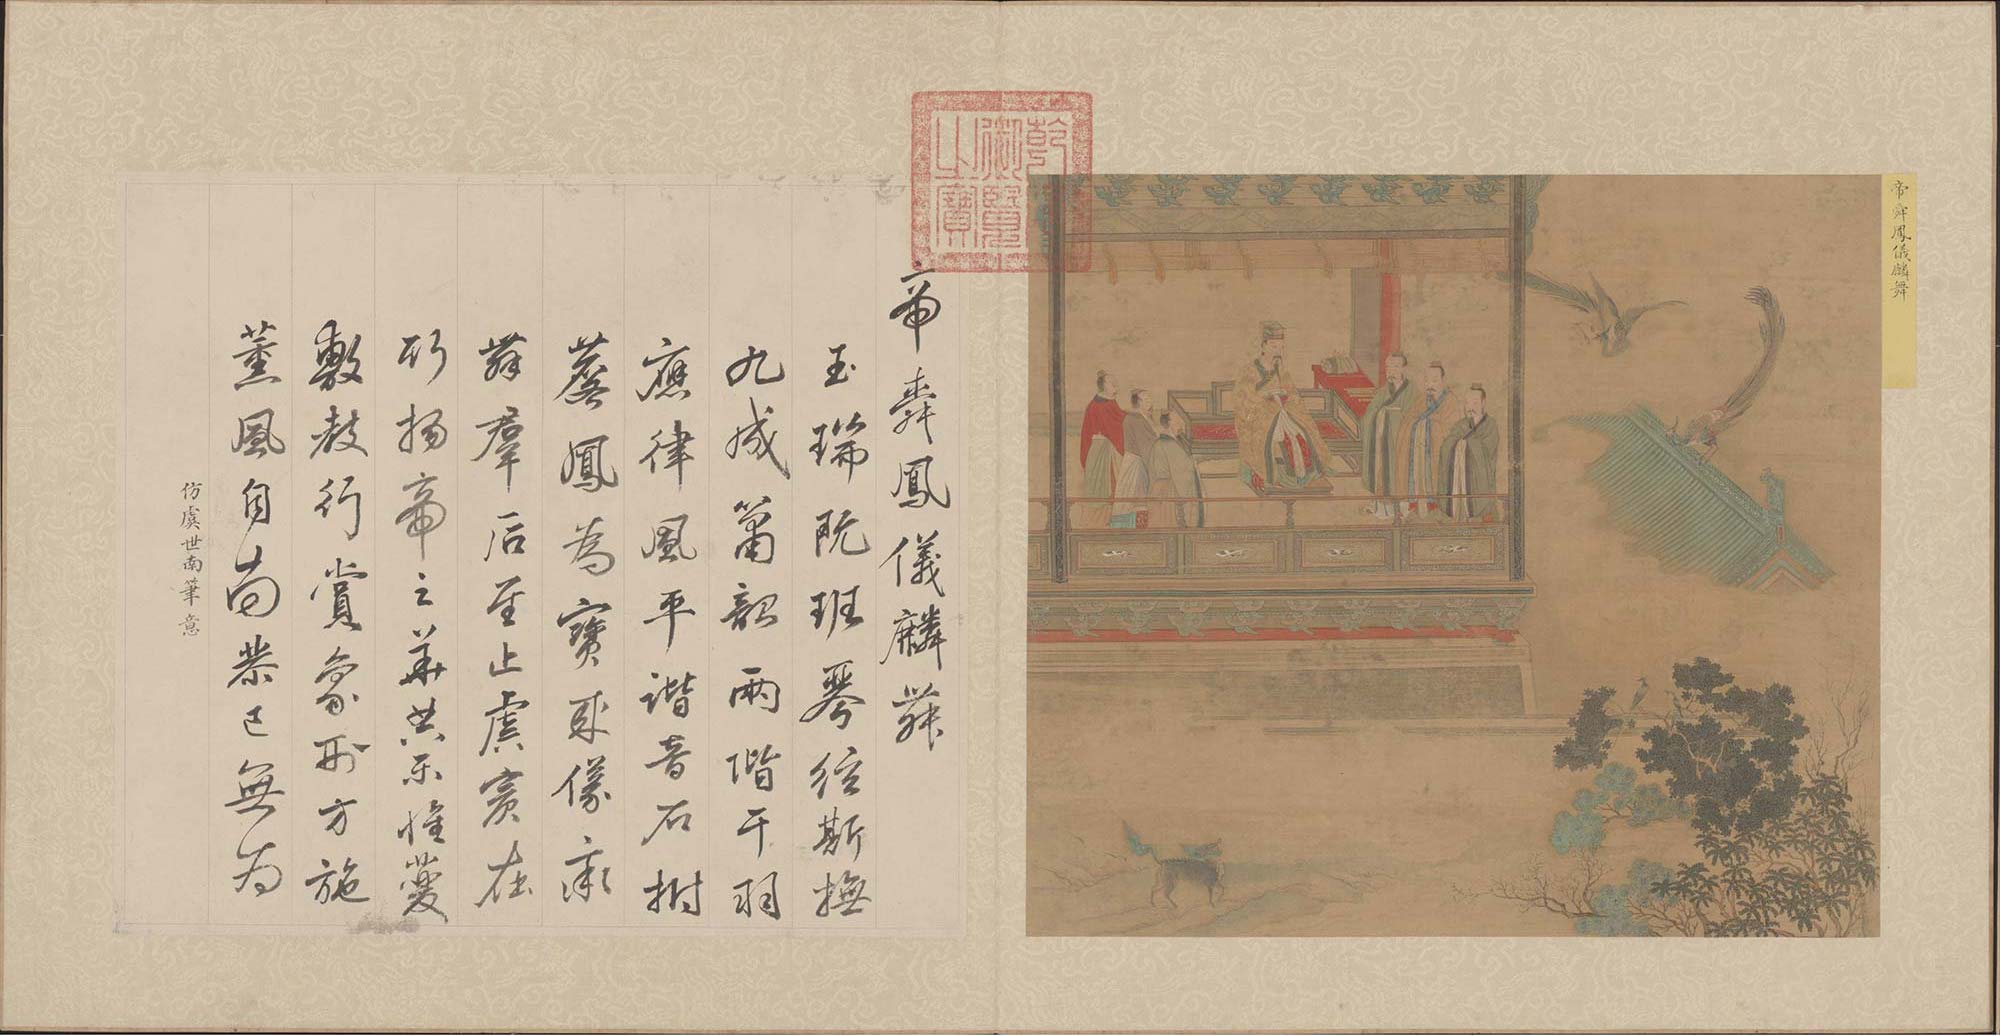 帝舜鳳儀麟舞
乾隆御覽之寶
帝舜鳳儀麟舞
玉瑞既班琴絃斯撫
九成簫韶兩階干羽
應律風平諧音石拊
蔼鳳為寶來儀率
舞群后至止虞賓在
所揚帝之華其樂惟
敷教行賞象刑方施
薰風自南恭已無為
仿虞世南筆意